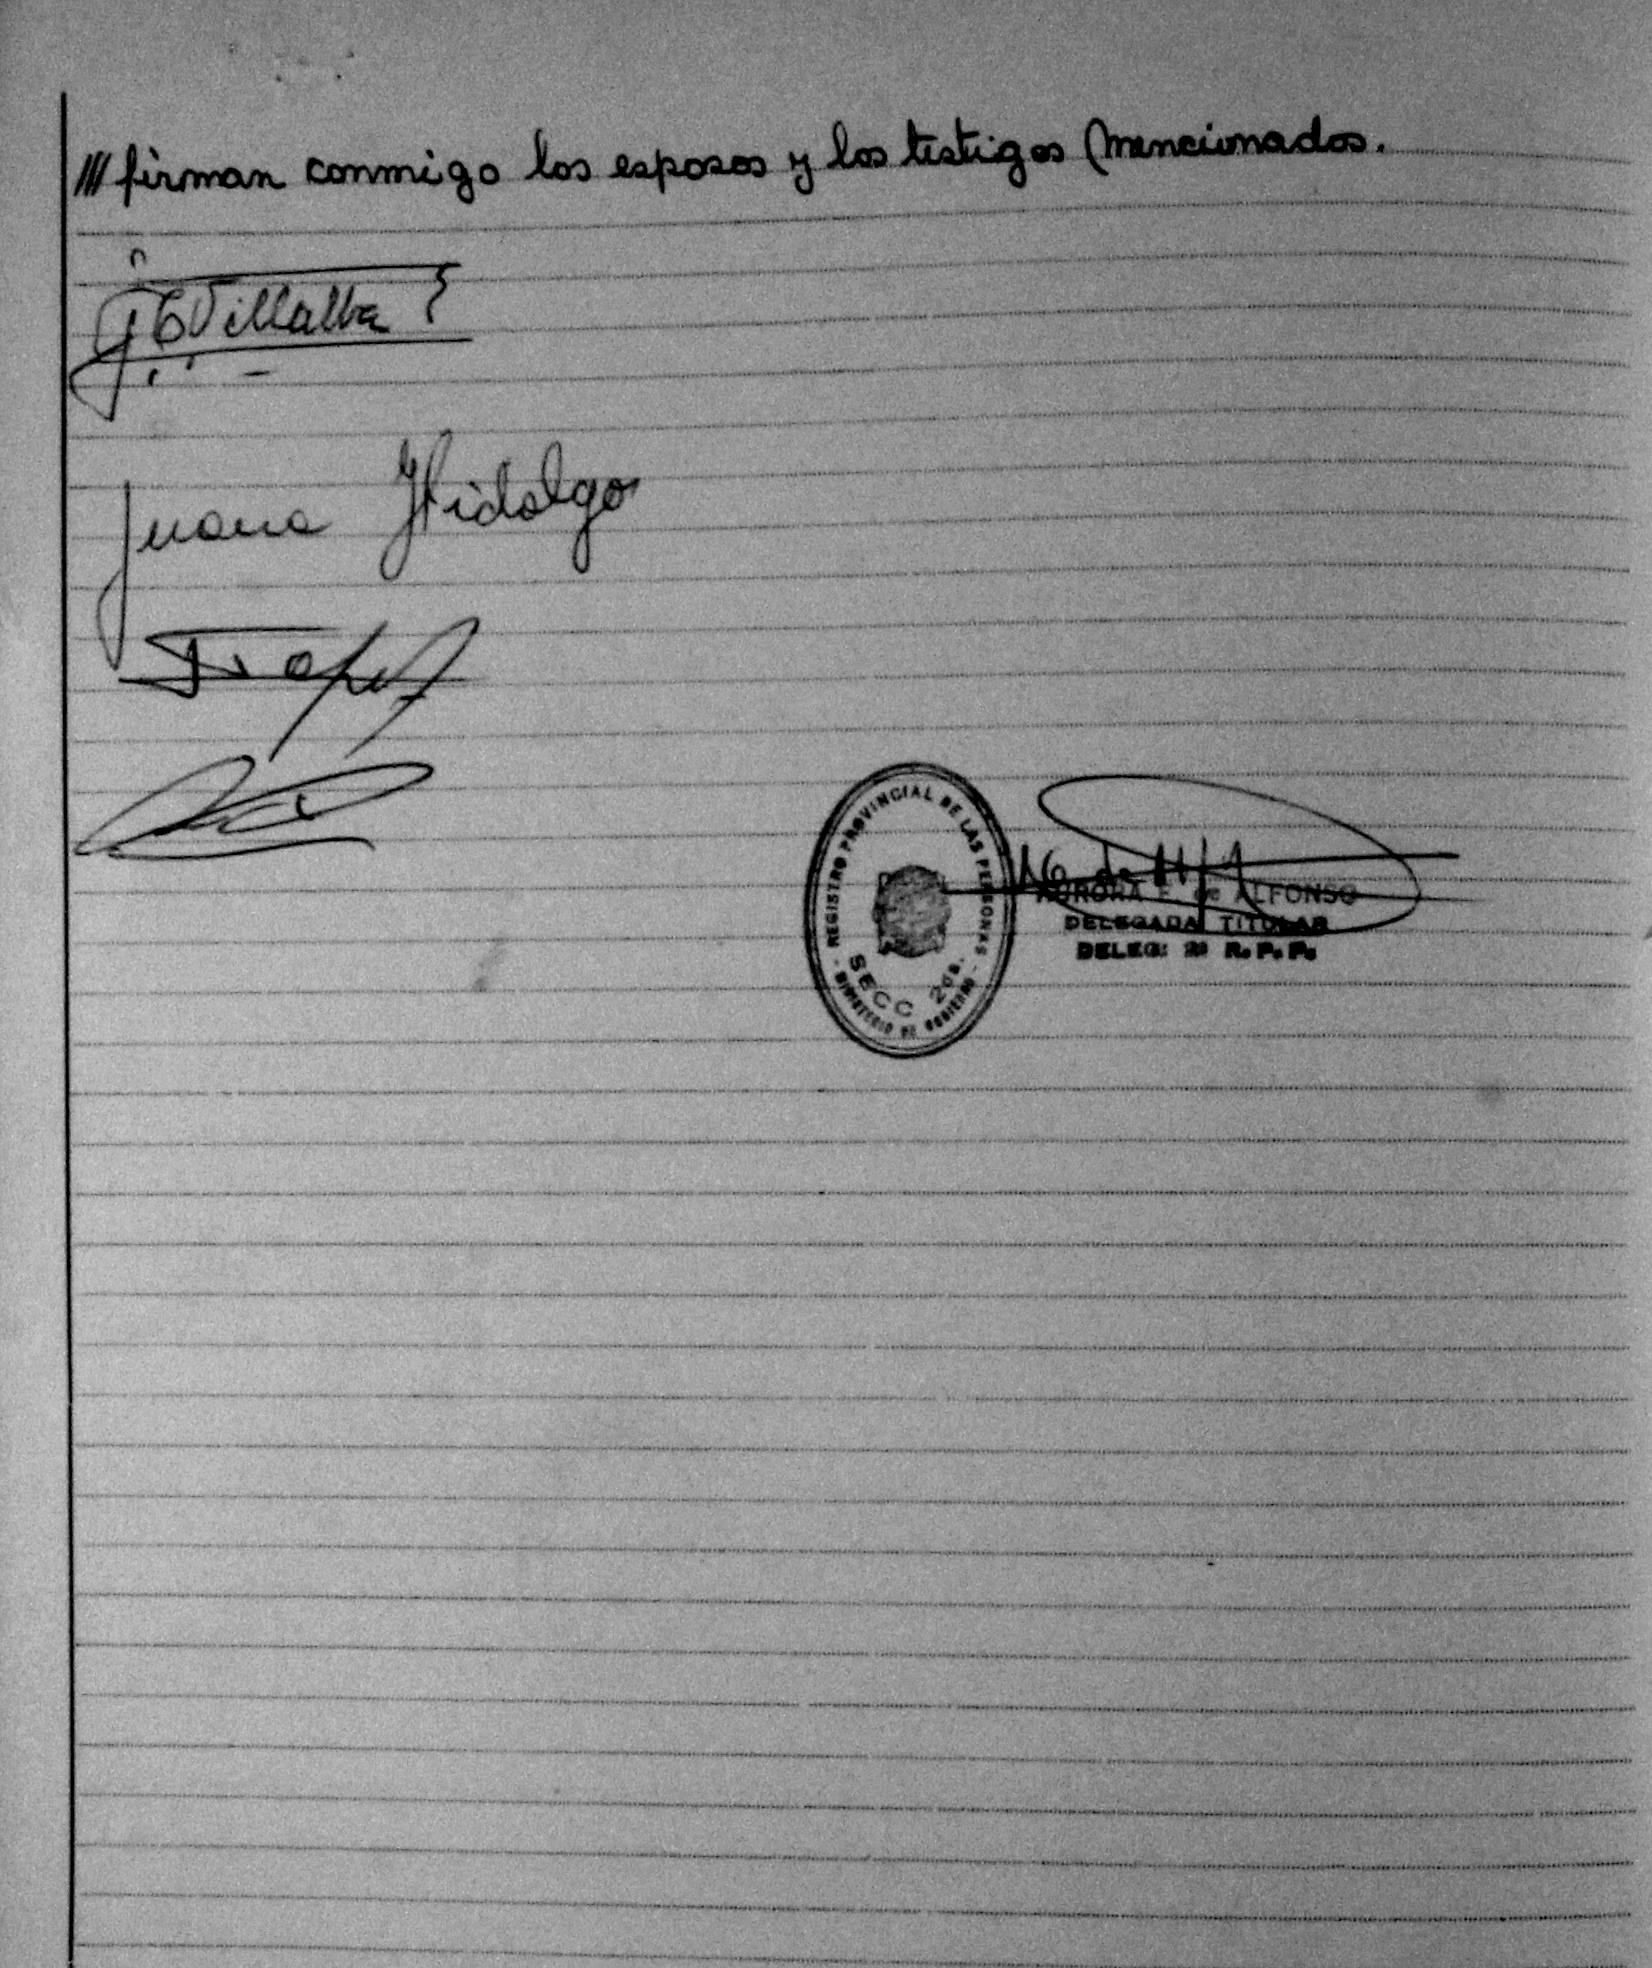 /// firman conmigo los esposos y los testigos mencionados.
Villalba
Juana Hidalgo
REGISTRO PROVINCIAL DE LAS PERSONAS
SECC 2da.
- MINISTERIO DE GOBIERNO -
AURORA E. de ALFONSO
DELEGADA TITULAR
DELEG: 2ª R.P.P.